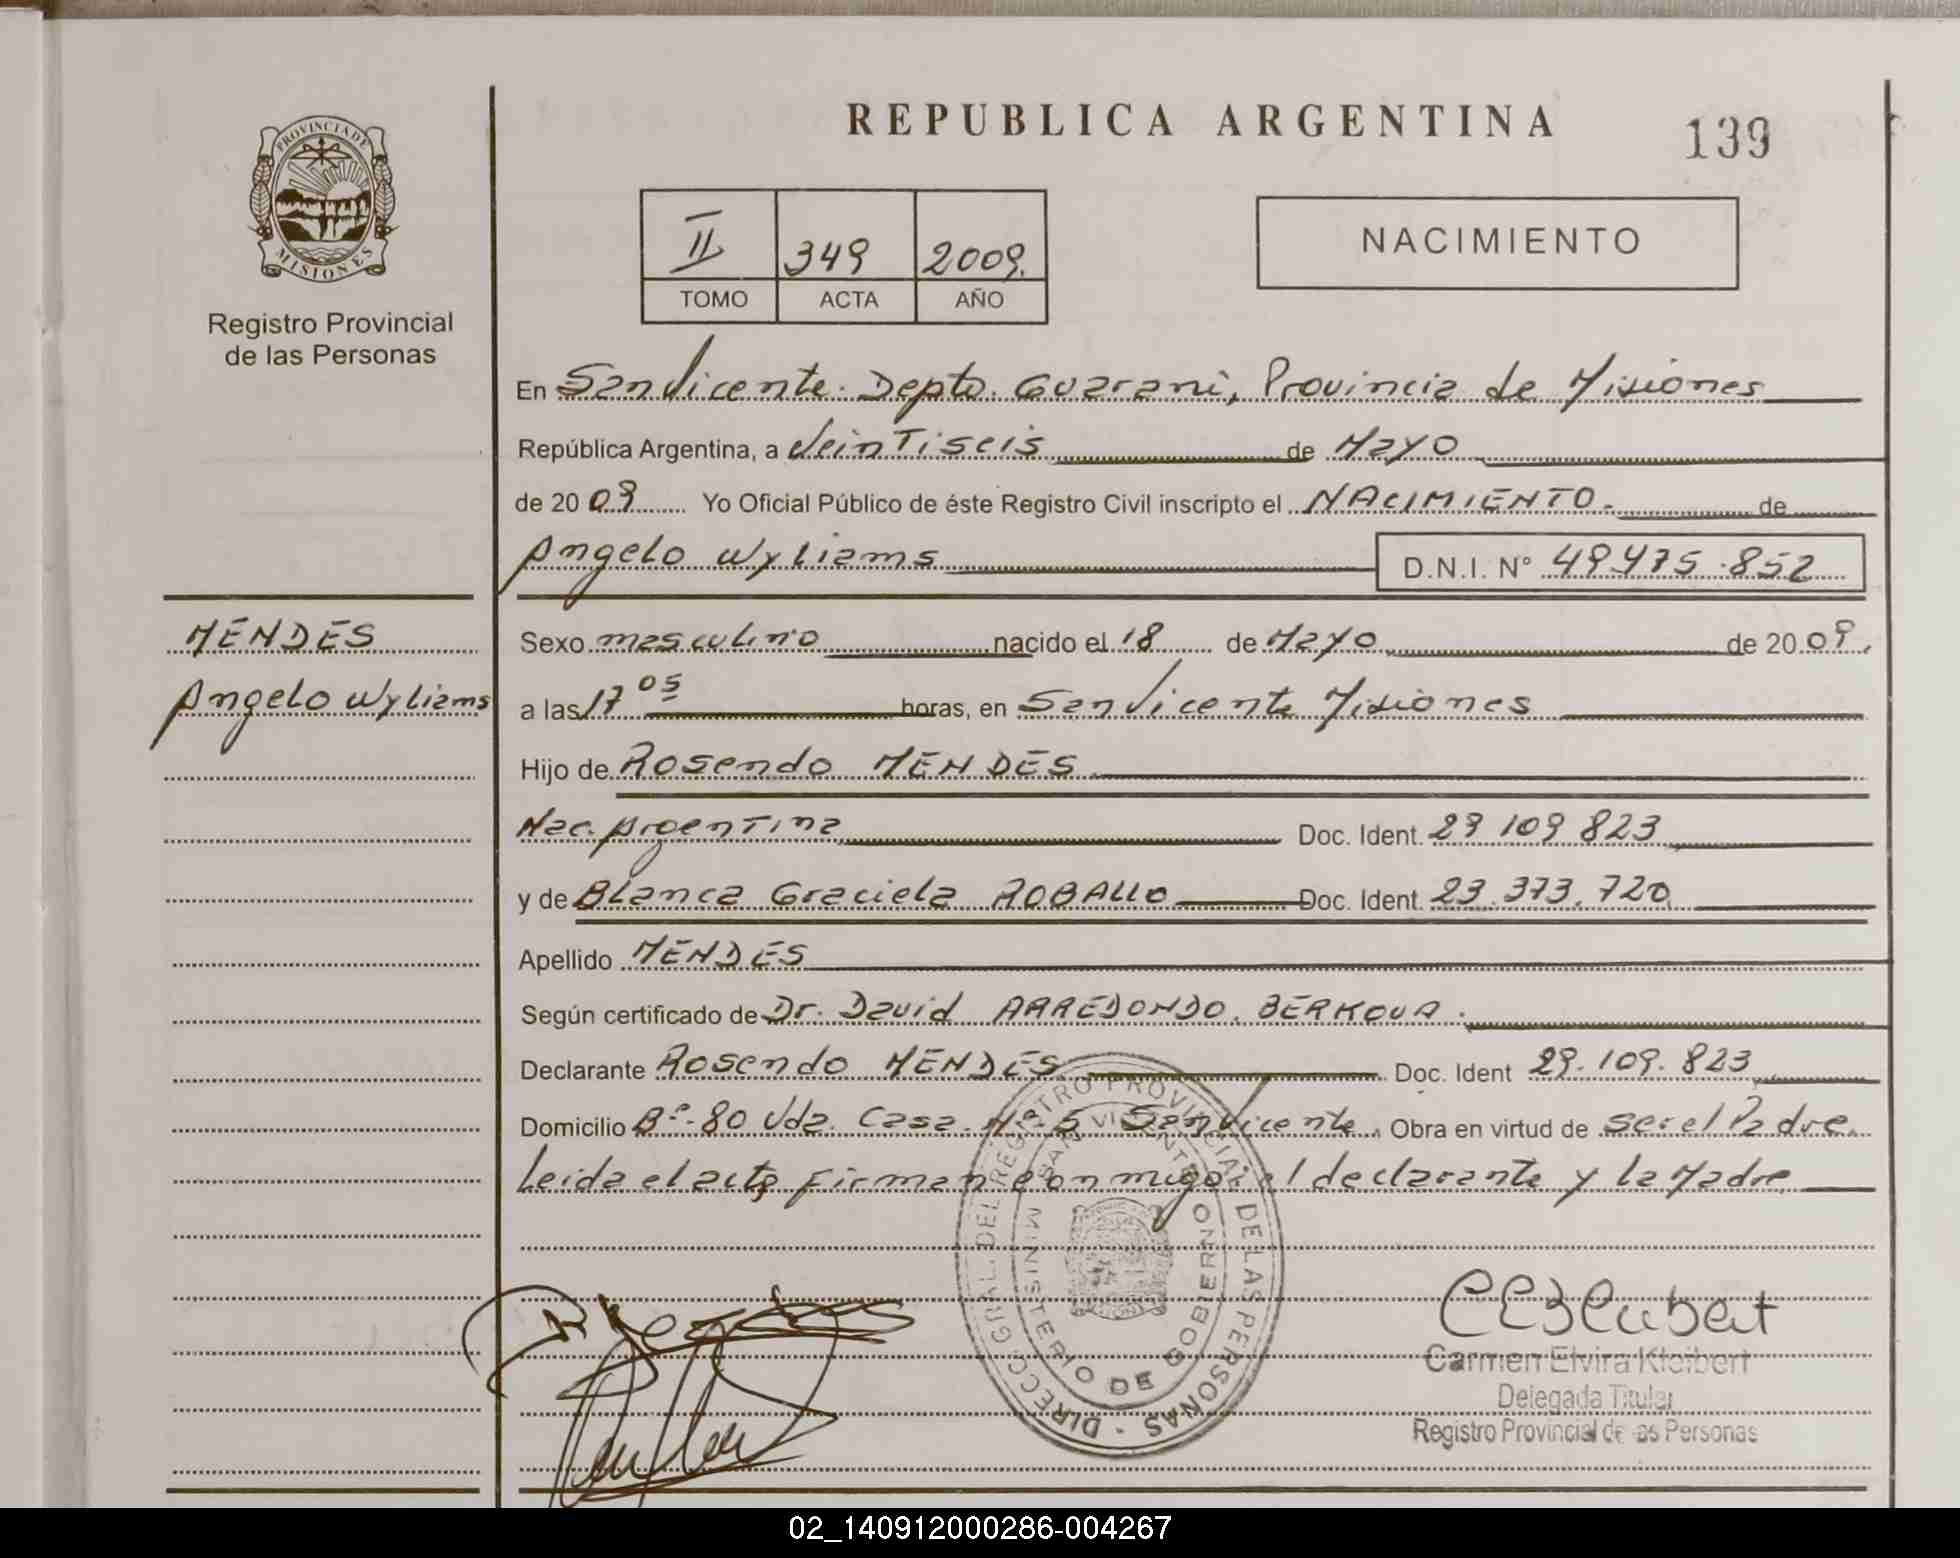 REPUBLICA ARGENTINA
139
PROVINCIA DE
MISIONES
Registro Provincial
de las Personas
II 349 2009.
TOMO ACTA AÑO
NACIMIENTO
En San Vicente. Depto. Guarani, Provincia de Misiones
República Argentina, a Veintiseis de Mayo
de 2009 Yo Oficial Público de éste Registro Civil inscripto el NACIMIENTO. de
Angelo Wyliams D.N.I. N° 49475.852
MENDES
Angelo Wyliams
Sexo masculino nacido el 18 de Mayo de 2009.
a las 17 05 horas, en San Vicente Misiones
Hijo de Rosendo MENDES
Nac. Argentina Doc. Ident. 29 109 823
y de Blanca Graciela ROBALLO Doc. Ident. 23.373.720
Apellido MENDES
Según certificado de Dr. David ARREDONDO. BERKOVA.
Declarante Rosendo MENDES Doc. Ident 29.109.823
Domicilio Bº-80 Vda. Casa Nº-5 San Vicente. Obra en virtud de ser el Padre.
Leida el acta firman conmigo el declarante y la Madre
DIRECC. GRAL. DEL REGISTRO PROVINCIAL DE LAS PERSONAS
SAN VICENTE
MINISTERIO DE GOBIERNO
CEKleibert
Carmen Elvira Kleibert
Delegada Titular
Registro Provincial de las Personas
02_140912000286-004267